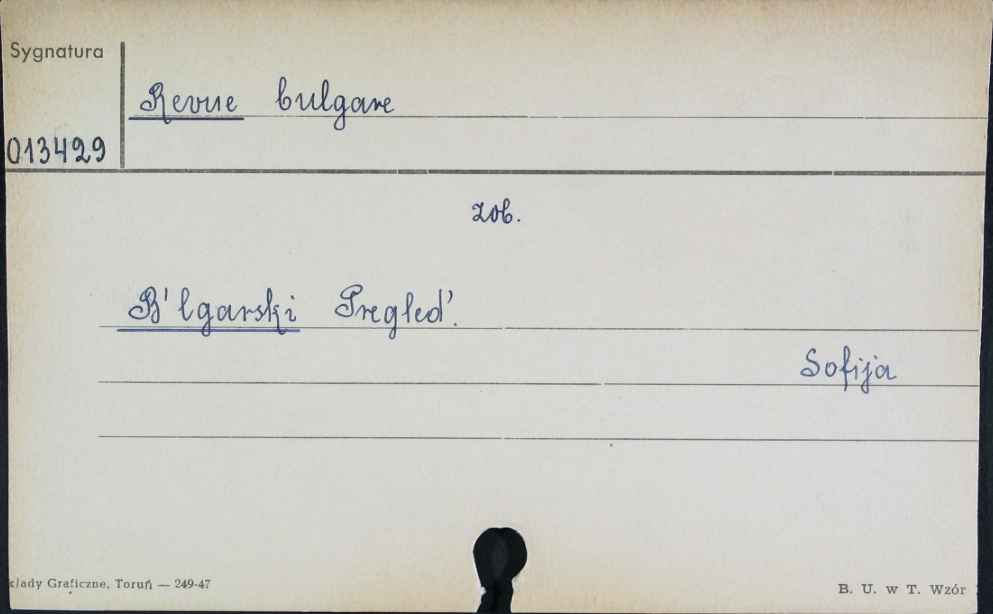 Sygnatura
Revue bulgare
013429
zob.
B'lgarski Pregled'.
Sofija
kłady Graficzne, Toruń — 249-47
B. U. w T. Wzór